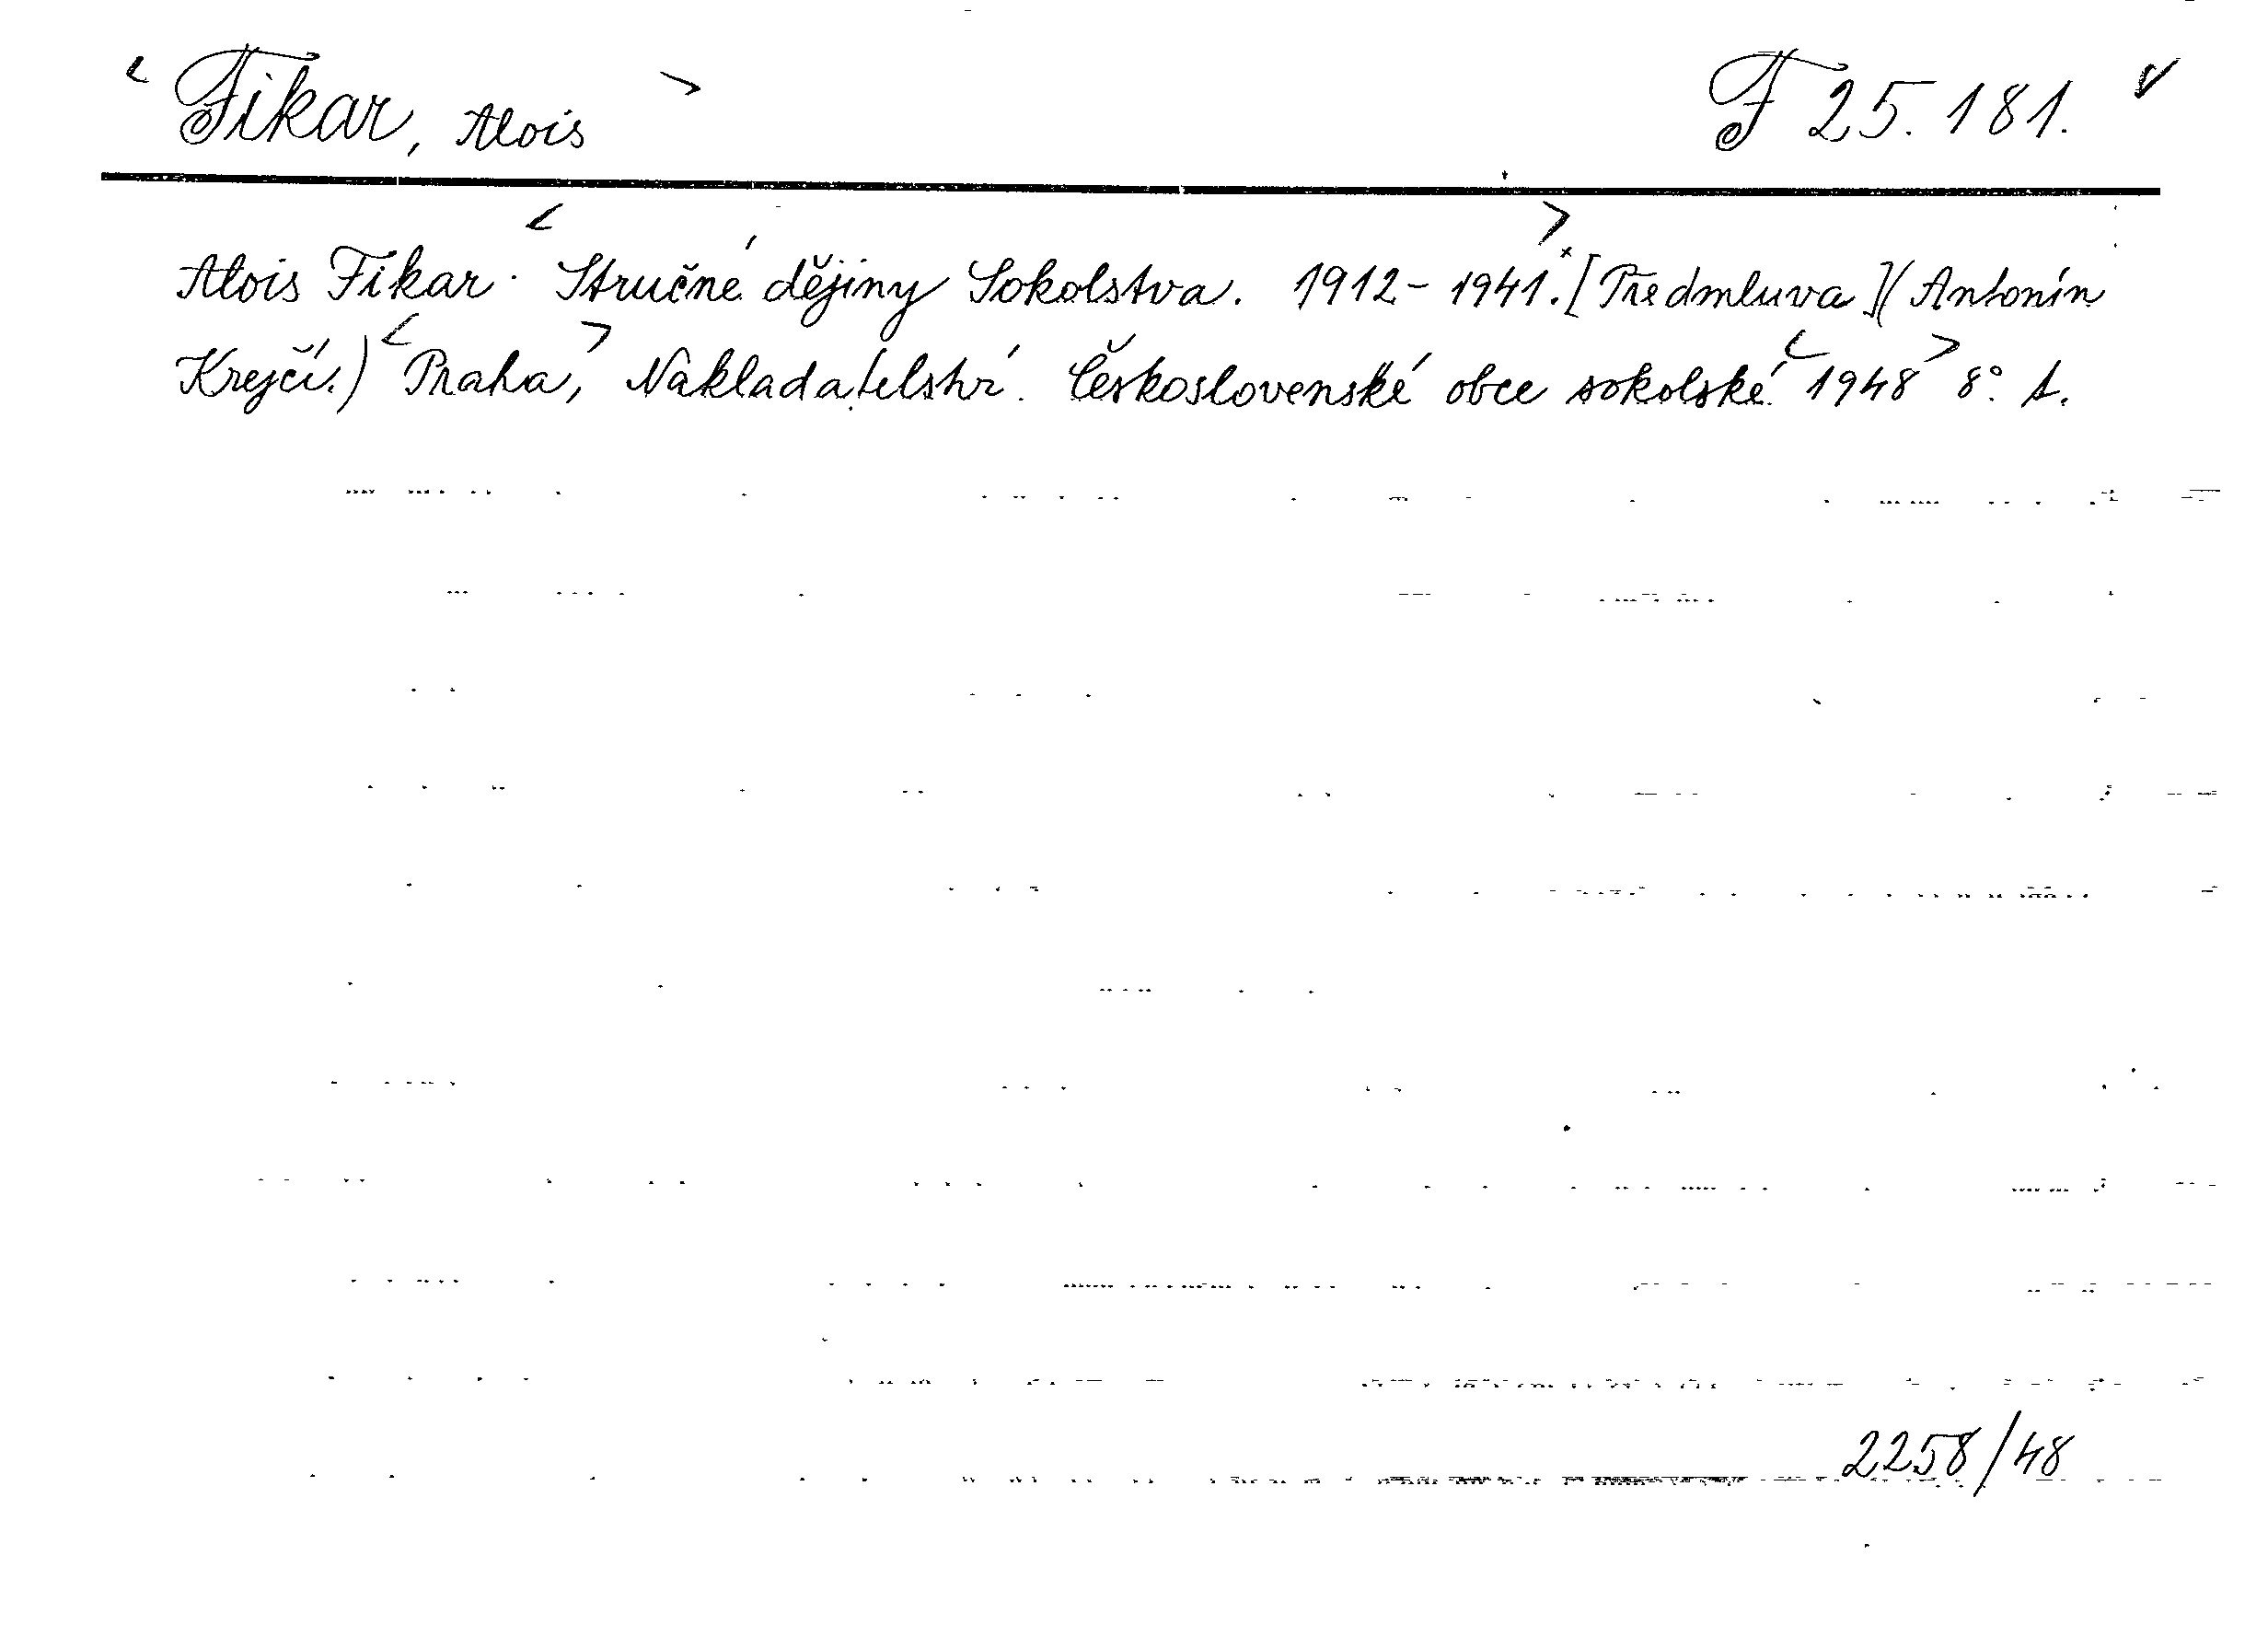 Fikar, Alois F 25.181.
Alois Fikar. Stručné dějiny Sokolstva. 1912-1941. [Předmluva](Antonín
Krejčí.) Praha, Nakladatelství Československé obce sokolské 1948 8°.
2258/48